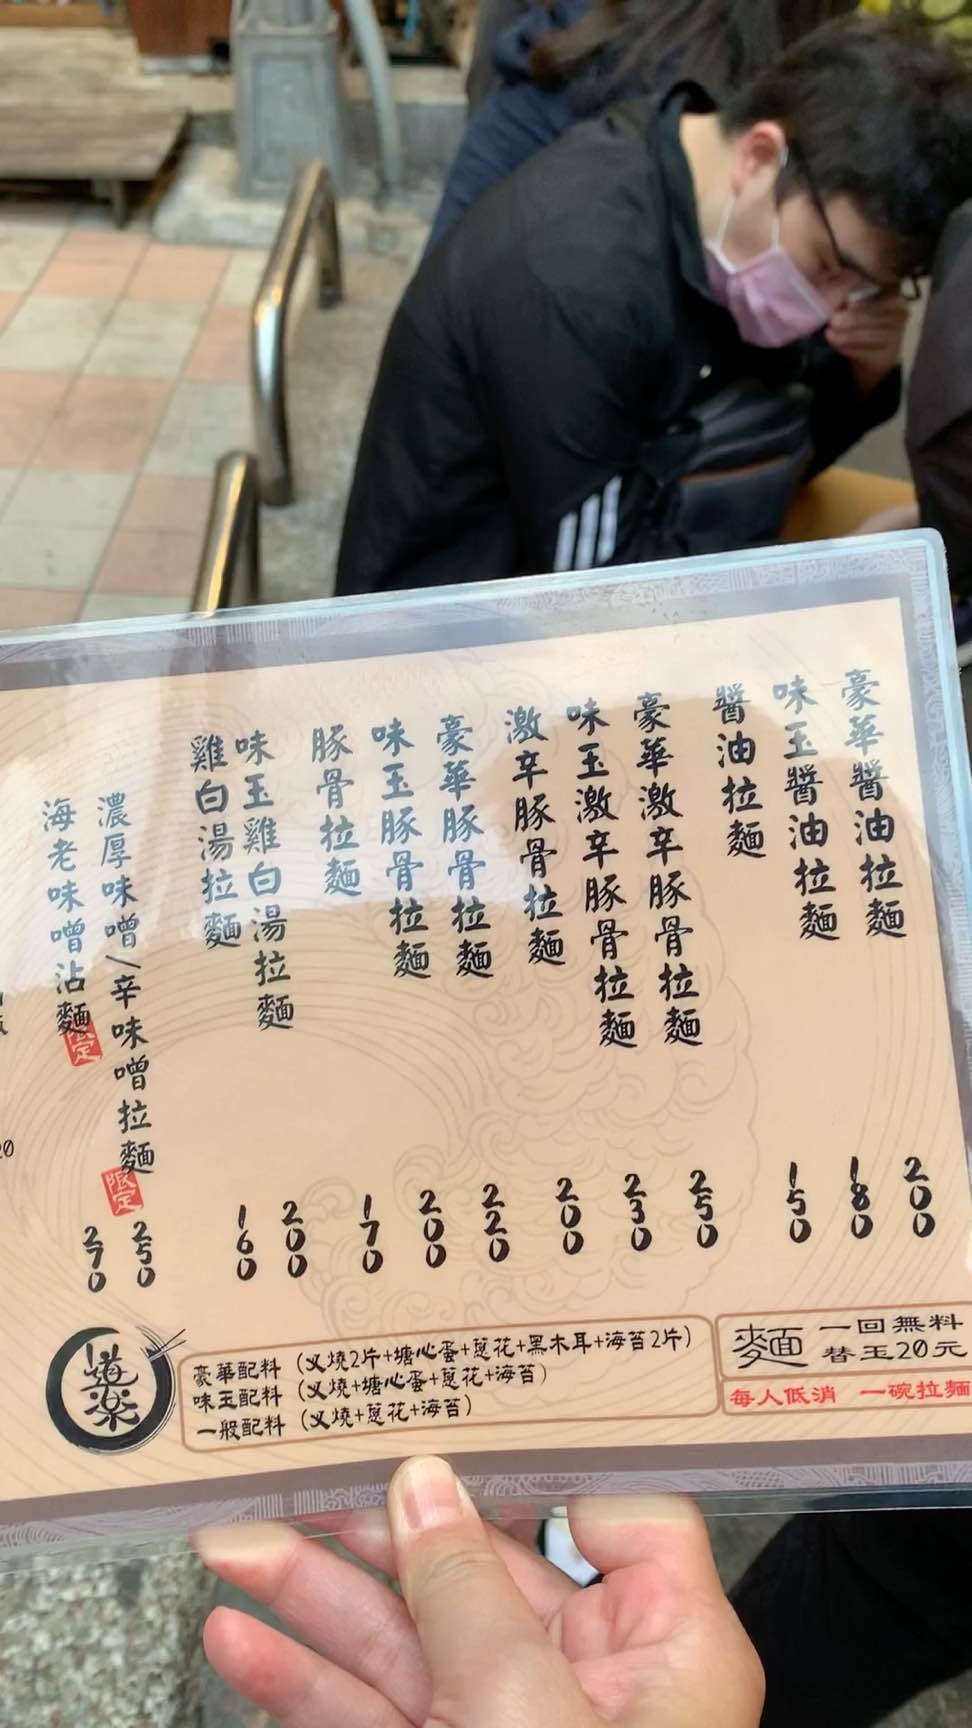 豪華醬油拉麵 200
味玉醬油拉麵 180
醬油拉麵 150
豪華激辛豚骨拉麵 250
味玉激辛豚骨拉麵 230
激辛豚骨拉麵 200
豪華豚骨拉麵 220
味玉豚骨拉麵 200
豚骨拉麵 170
味玉雞白湯拉麵 200
雞白湯拉麵 160
濃厚味噌/辛味噌拉麵 限定 250
海老味噌沾麵 限定 270
20
道楽
豪華配料(叉燒2片+糖心蛋+蔥花+黑木耳+海苔2片)
味玉配料(叉燒+糖心蛋+蔥花+海苔)
一般配料(叉燒+蔥花+海苔)
麵 一回無料
替玉20元
每人低消 一碗拉麵